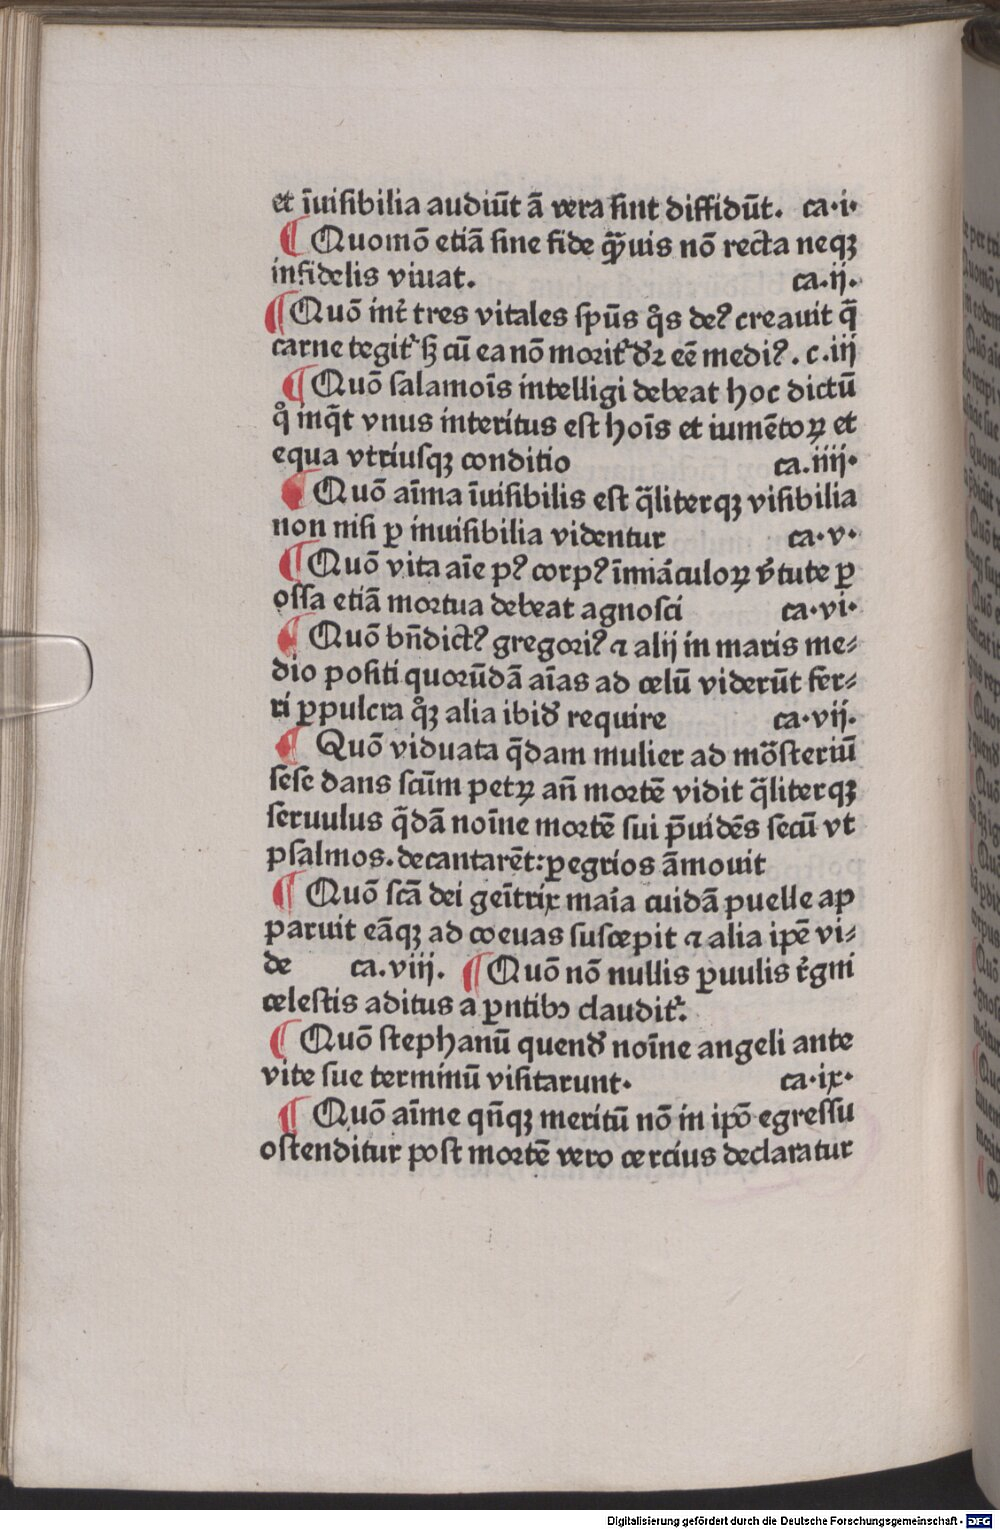 et īuisibilia audiūt ā vera sint diffidūt. ca·i·
¶ Quomō etiā sine fide qͣuis nō recta neqꝫ
infidelis viuat. ca.ij.
¶ Quō int̄ tres vitales spūs qͦs deꝰ creauit q̄
carne tegit᷑ sꝫ cū ea nō morit᷑ d᷑ꝛ eē mediꝰ. c.iij
¶ Quō salamoīs intelligi debeat hoc dictū
qͦ inq̄t vnus interitus est hoīs et iumētoꝝ et
equa vtriusqꝫ conditio ca.iiij·
¶ Quō aīma īuisibilis est q̄literqꝫ visibilia
non nisi ꝑ inuisibilia videntur ca·v·
¶ Quō vita aīe pꝰ corpꝰ īmiāculoꝝ v̄tute ꝑ
ossa etiā mortua debeat agnosci ca·vi·
¶ Quō bn̄dictꝰ gregoriꝰ ⁊ alij in maris me⸗
dio positi quorūdā aīas ad celū viderūt fer⸗
ri ꝑpulcra qͦꝫ alia ibid᷑ require ca·vij.
¶ Quō viduata q̄dam mulier ad mōsteriū
sese dans scūm petꝝ an̄ mortē vidit q̄literqꝫ
seruulus q̄dā noīne mortē sui p̄uidēs secū vt
psalmos.decantarēt:ꝑegrios āmouit
¶ Quō scā dei geītrix maīa cuidā puelle ap
paruit eāqꝫ ad coeuas suscepit ⁊ alia ipē vi⸗
de ca.viij. ¶ Quō nō nullis ꝑuulis r̄gni
celestis aditus a ꝑntibꝰ claudit᷑.
¶ Quō stephanū quend᷑ noīne angeli ante
vite sue terminū visitarunt· ca·ix·
¶ Quō aīme qn̄qꝫ meritū nō in ipō egressu
ostenditur post mortē vero cercius declaratur
Digitalisierung gefördert durch die Deutsche Forschungsgemeinschaft - DFG